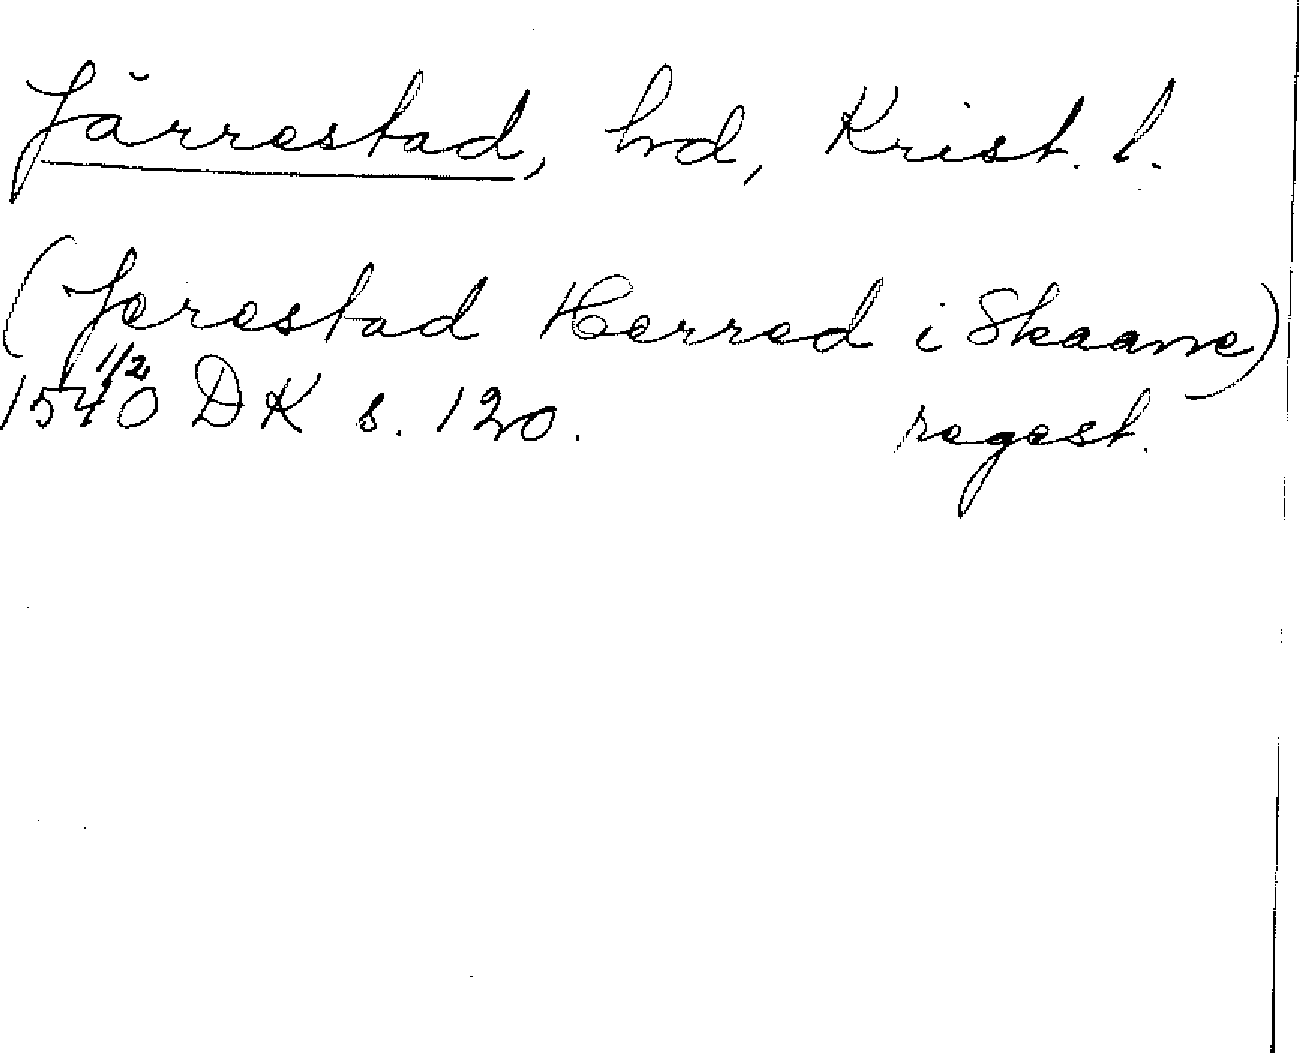 Järrestad, hd, Krist. l.
(Jerestad Herred i Skaane)
1540 1/2 DK s. 120. regest.